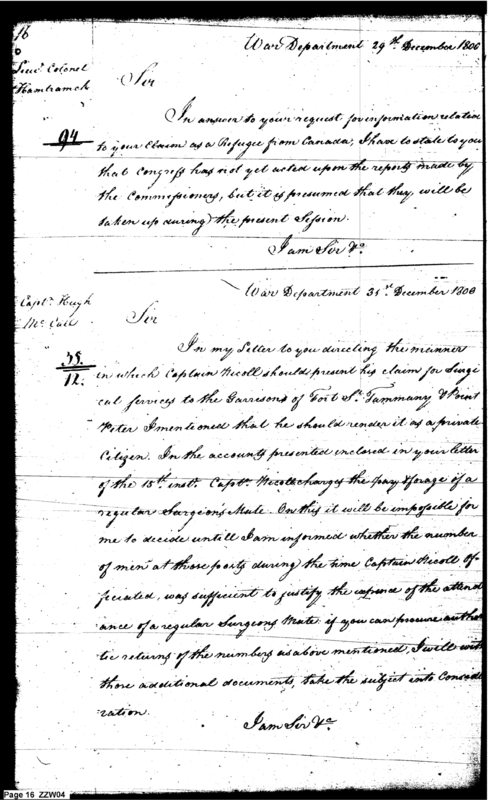 16
War Department 29th. December 1800
Lieut. Colonel
Hamtramck
Sir
In answer to your request for information related
94
to your Claim as a Refugee from Canada, I have to state to you
that Congress has not yet acted upon the reports made by
the Commissioners, but it is presumed that they will be
taken up during the present Session.
I am Sir &c.
War Department 31st. December 1800
Captn. Hugh
Mc. Call
Sir
In my Letter to you directing the manner
35.
12.
in which Captain Nicoll should present his claim for Surgi
cal services to the Garrisons of Fort St. Tammany & Point
Peter I mentioned that he should render it as a private
Citizen. In the accounts presented enclosed in your letter
of the 15th. inst. Captn. Nicoll charges the pay & forage of a
regular Surgion's Mate. On this it will be impossible for
me to decide untill I am informed whether the number
of men at those posts during the time Captain Nicoll Of-
ficiated, was sufficient to justify the expence of the attend
ance of a regular Surgeons Mate if you can procure authe
tic returns of the numbers as above mentioned, I will with
those additional documents, take the subject into Consid
ration.
I am Sir &c
Page 16 ZZW04